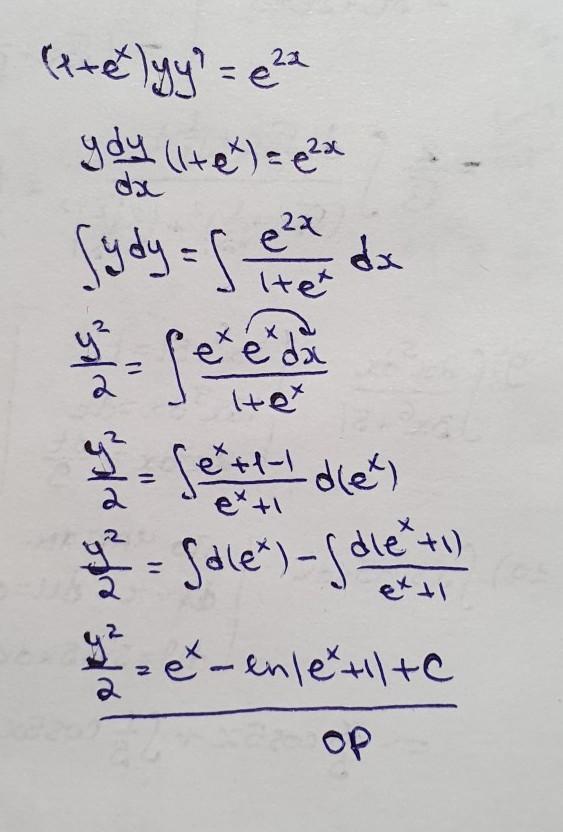 (1+e^x)yy' = e^{2x}
y dy/dx (1+e^x) = e^{2x}
∫ydy = ∫ e^{2x}/(1+e^x) dx
y²/2 = ∫ e^x e^x dx/(1+e^x)
y²/2 = ∫ (e^x+1-1)/(e^x+1) d(e^x)
y²/2 = ∫d(e^x) - ∫ d(e^x+1)/(e^x+1)
y²/2 = e^x - ln|e^x+1| + C
OP